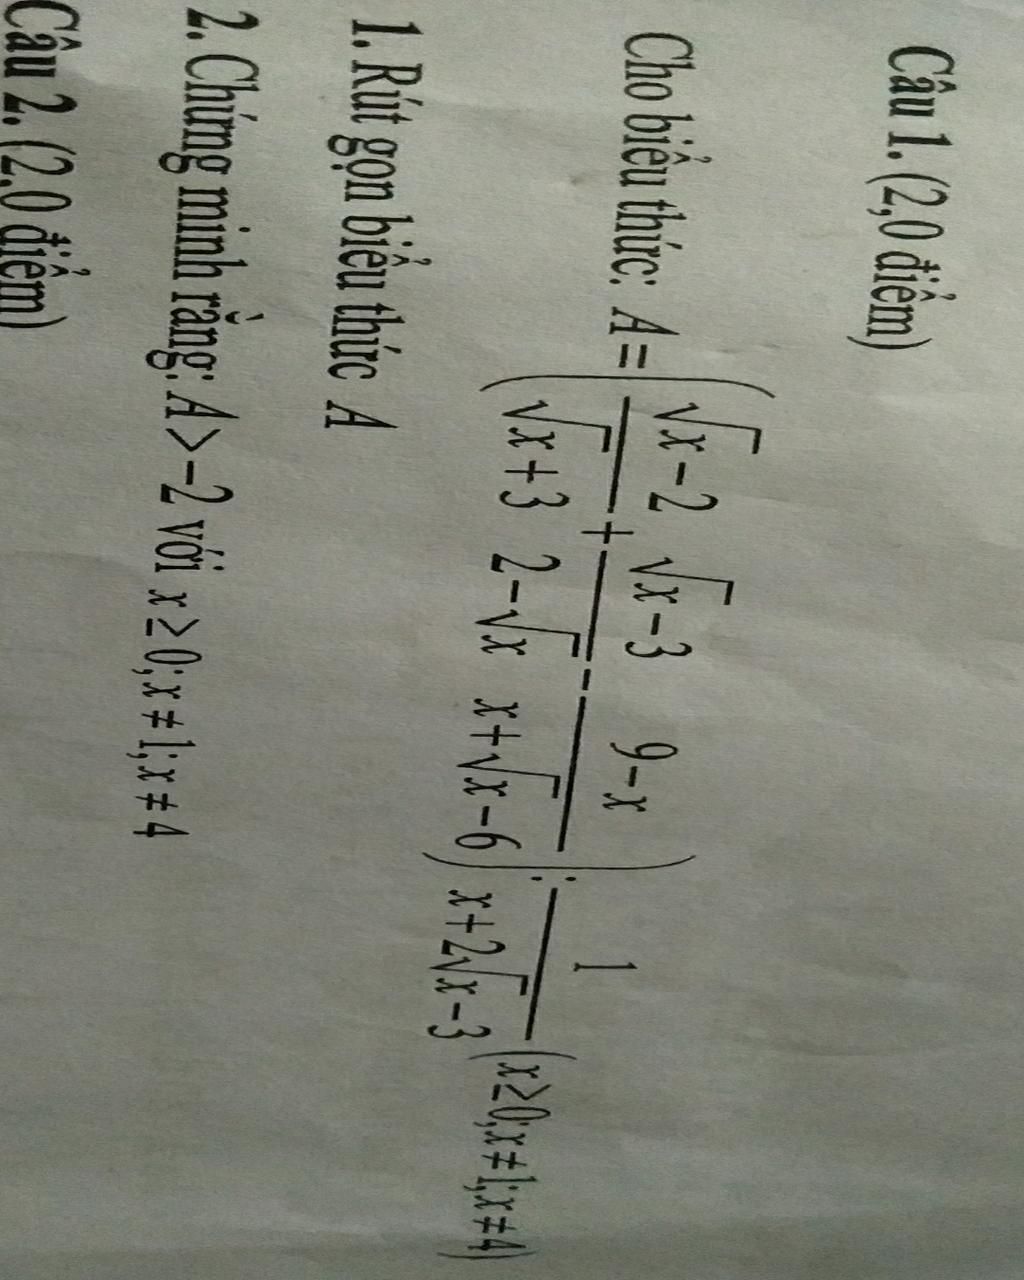 Câu 1. (2,0 điểm)
Cho biểu thức: A = (\frac{\sqrt{x}-2}{\sqrt{x}+3} + \frac{\sqrt{x}-3}{2-\sqrt{x}} - \frac{9-x}{x+\sqrt{x}-6}) : \frac{1}{x+2\sqrt{x}-3} (x ≥ 0; x ≠ 1; x ≠ 4)
1. Rút gọn biểu thức A
2. Chứng minh rằng: A > -2 với x ≥ 0; x ≠ 1; x ≠ 4
Câu 2. (2,0 điểm)